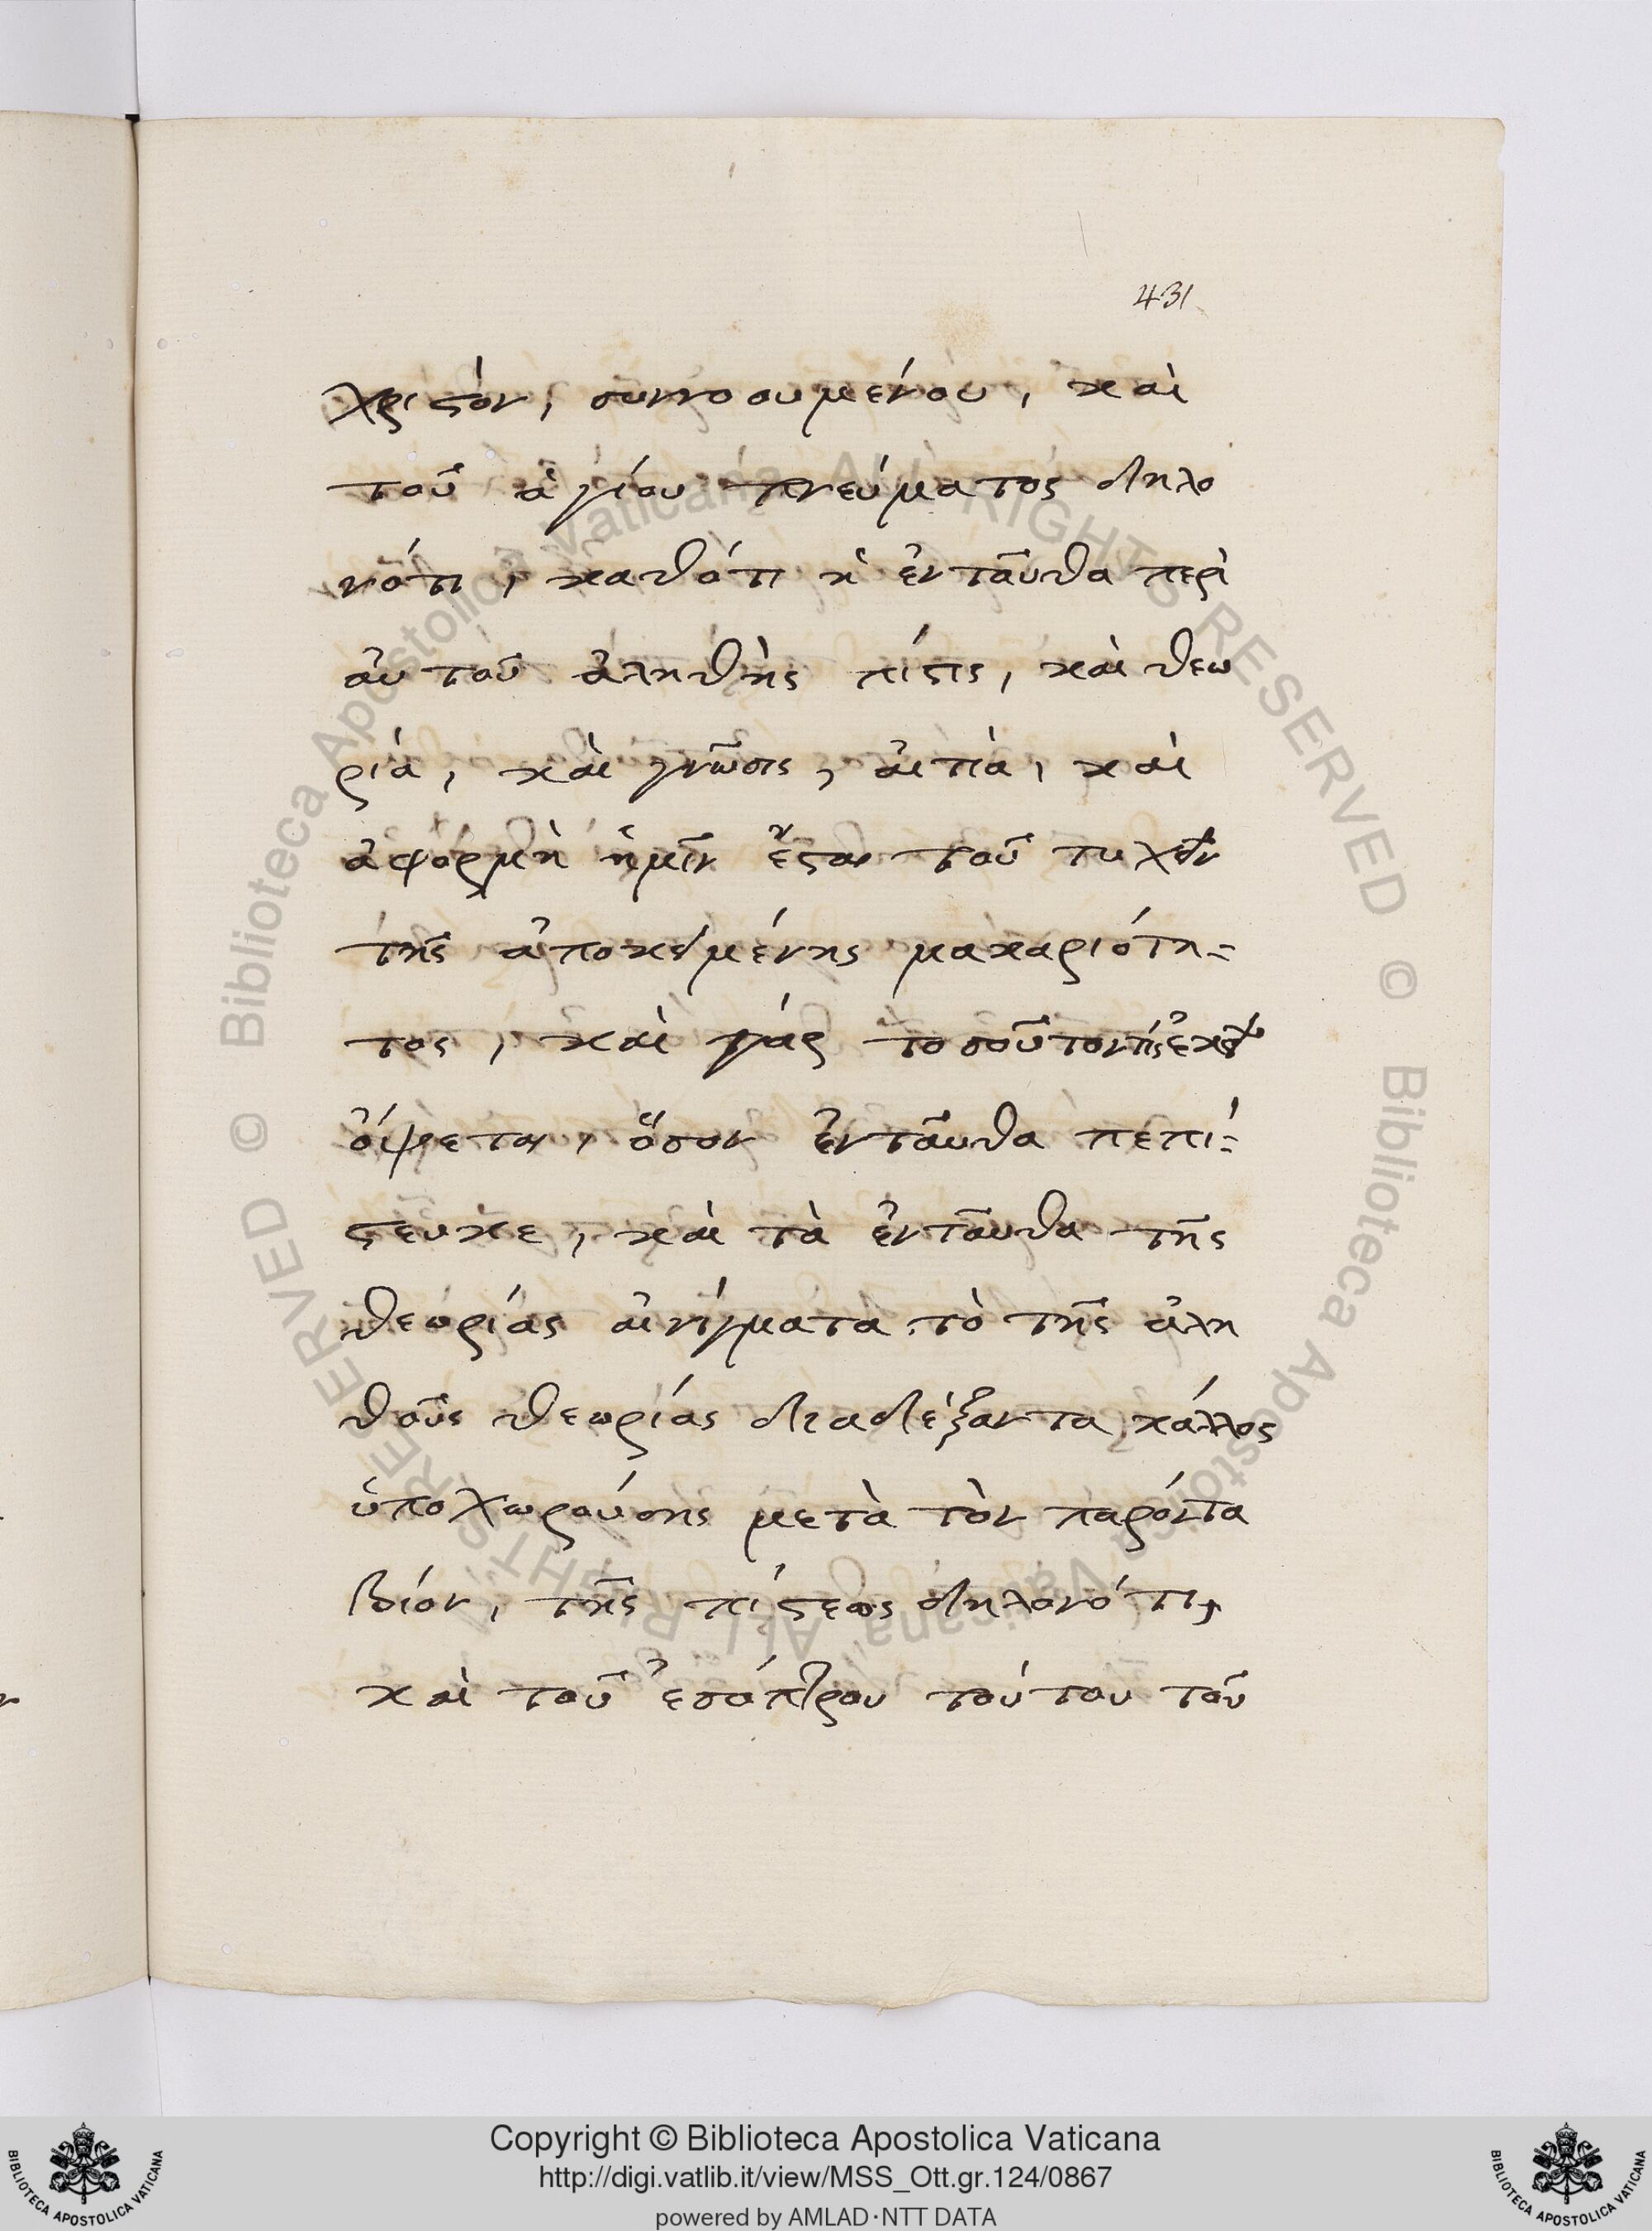 431
χριστὸν, συννοουμένου, καὶ
τοῦ ἁγίου πνεύματος δηλο
νότι, καθότι ἡ ἐνταῦθα περὶ
αὐτοῦ ἀληθὴς πίστις, καὶ θεω
ρία, καὶ γνῶσις, αἰτία, καὶ
ἀφορμὴ ἡμῖν ἔσται τοῦ τυχεῖν
τῆς ἀποκειμένης μακαριότη-
τος, καὶ γὰρ τοσοῦτον τίς ἐκεῖ
ὄψεται, ὅσον ἐνταῦθα πεπί-
στευκε, καὶ τὰ ἐνταῦθα τῆς
θεωρίας αἰνίγματα τὸ τῆς ἀλη
θοῦς θεωρίας διαδέξονται κάλλος
ὑποχωρούσης μετὰ τὸν παρόντα
βίον, τῆς πίστεως δηλονότι,
καὶ τοῦ ἐσόπτρου τούτου τοῦ
© Biblioteca Apostolica Vaticana ALL RIGHTS RESERVED © Biblioteca Apostolica Vaticana ALL RIGHTS RESERVED
BIBLIOTECA APOSTOLICA VATICANA
Copyright © Biblioteca Apostolica Vaticana
http://digi.vatlib.it/view/MSS_Ott.gr.124/0867
powered by AMLAD·NTT DATA
BIBLIOTECA APOSTOLICA VATICANA